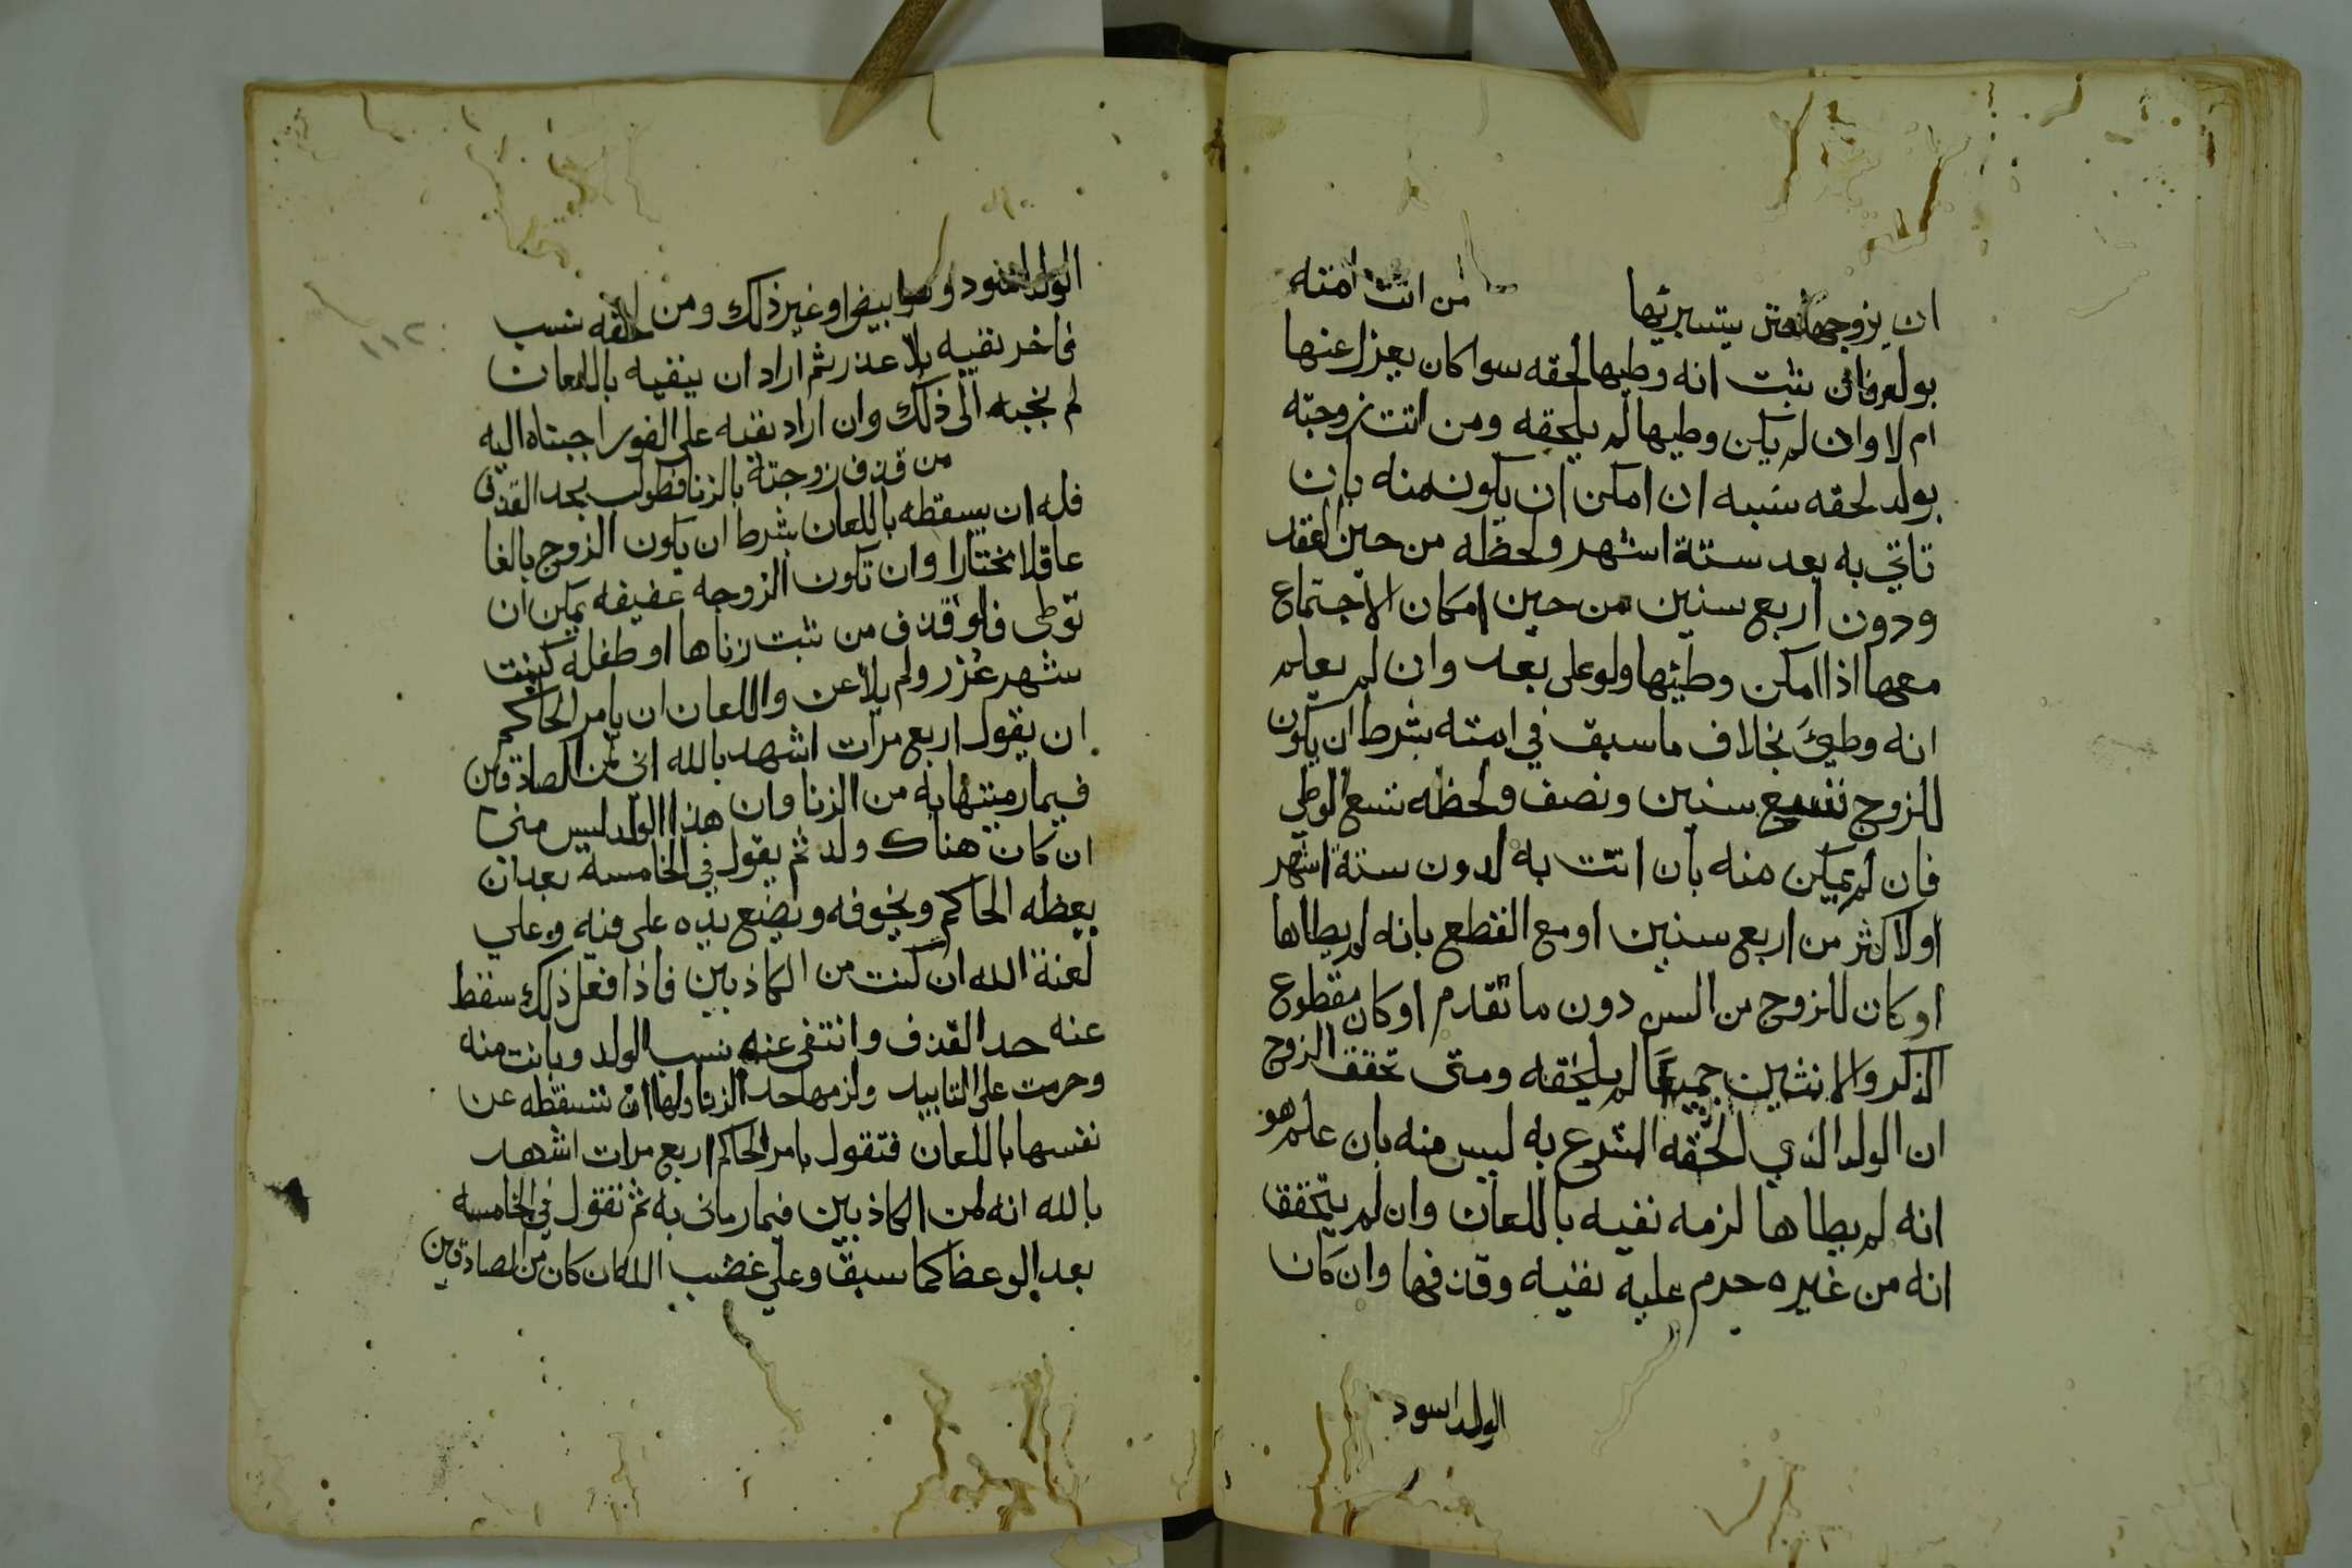 ان يزوجها قبل يستبريها من اتت امته
بولد فان ثبت انه وطيها لحقه سوا كان يعزل عنها
ام لا وان لم يكن وطيها لم يلحقه ومن اتت زوجته
بولد لحقه نسبه ان امكن ان يكون منه بان
تاتي به بعد ستة اشهر ولحظه من حين العقد
ودون اربع سنين من حين امكان الاجتماع
معها اذا امكن وطيها ولو على بعد وان لم يعلم
انه وطئ بخلاف ما سبق في امته بشرط ان يكون
للزوج تسع سنين ونصف ولحظه تسع الوطي
فان لم يمكن منه بان اتت به لدون ستة اشهر
او لاكثر من اربع سنين او مع القطع بانه لم يطاها
او كان للزوج من السن دون ما تقدم او كان مقطوع
الذكر والانثيين جميعا لم يلحقه ومتى تحقق الزوج
ان الولد الذي الحقه الشرع به ليس منه بان علم هو
انه لم يطاها لزمه نفيه باللعان وان لم يتحقق
انه من غيره حرم عليه نفيه وقذفها وان كان
الولد اسود
الولد اسود وهما بيض او غير ذلك ومن لحقه نسب
فاخر نفيه بلا عذر ثم اراد ان ينفيه باللعان
لم نجبه الى ذلك وان اراد نفيه على الفور اجبناه اليه
من قذف زوجته بالزنا فطولب بحد القذف
فله ان يسقطه باللعان بشرط ان يكون الزوج بالغا
عاقلا مختارا وان تكون الزوجه عفيفه يمكن ان
توطى فلو قذف من ثبت زناها او طفلة كبنت
شهر عزر ولم يلاعن واللعان ان يامر الحاكم
ان يقول اربع مرات اشهد بالله اني لمن الصادقين
فيما رميتها به من الزنا وان هذا الولد ليس مني
ان كان هناك ولد ثم يقول في الخامسة بعد ان
يعظه الحاكم ويخوفه ويضع يده على فيه وعلي
لعنة الله ان كنت من الكاذبين فاذا فعل ذلك سقط
عنه حد القذف وانتفى عنه نسب الولد وبانت منه
وحرمت على التابيد ولزمها حد الزنا ولها ان تسقطه عن
نفسها باللعان فتقول بامر الحاكم اربع مرات اشهد
بالله انه لمن الكاذبين فيما رماني به ثم تقول في الخامسه
بعد الوعظ كما سبق وعلي غضب الله ان كان من الصادقين
١١٢